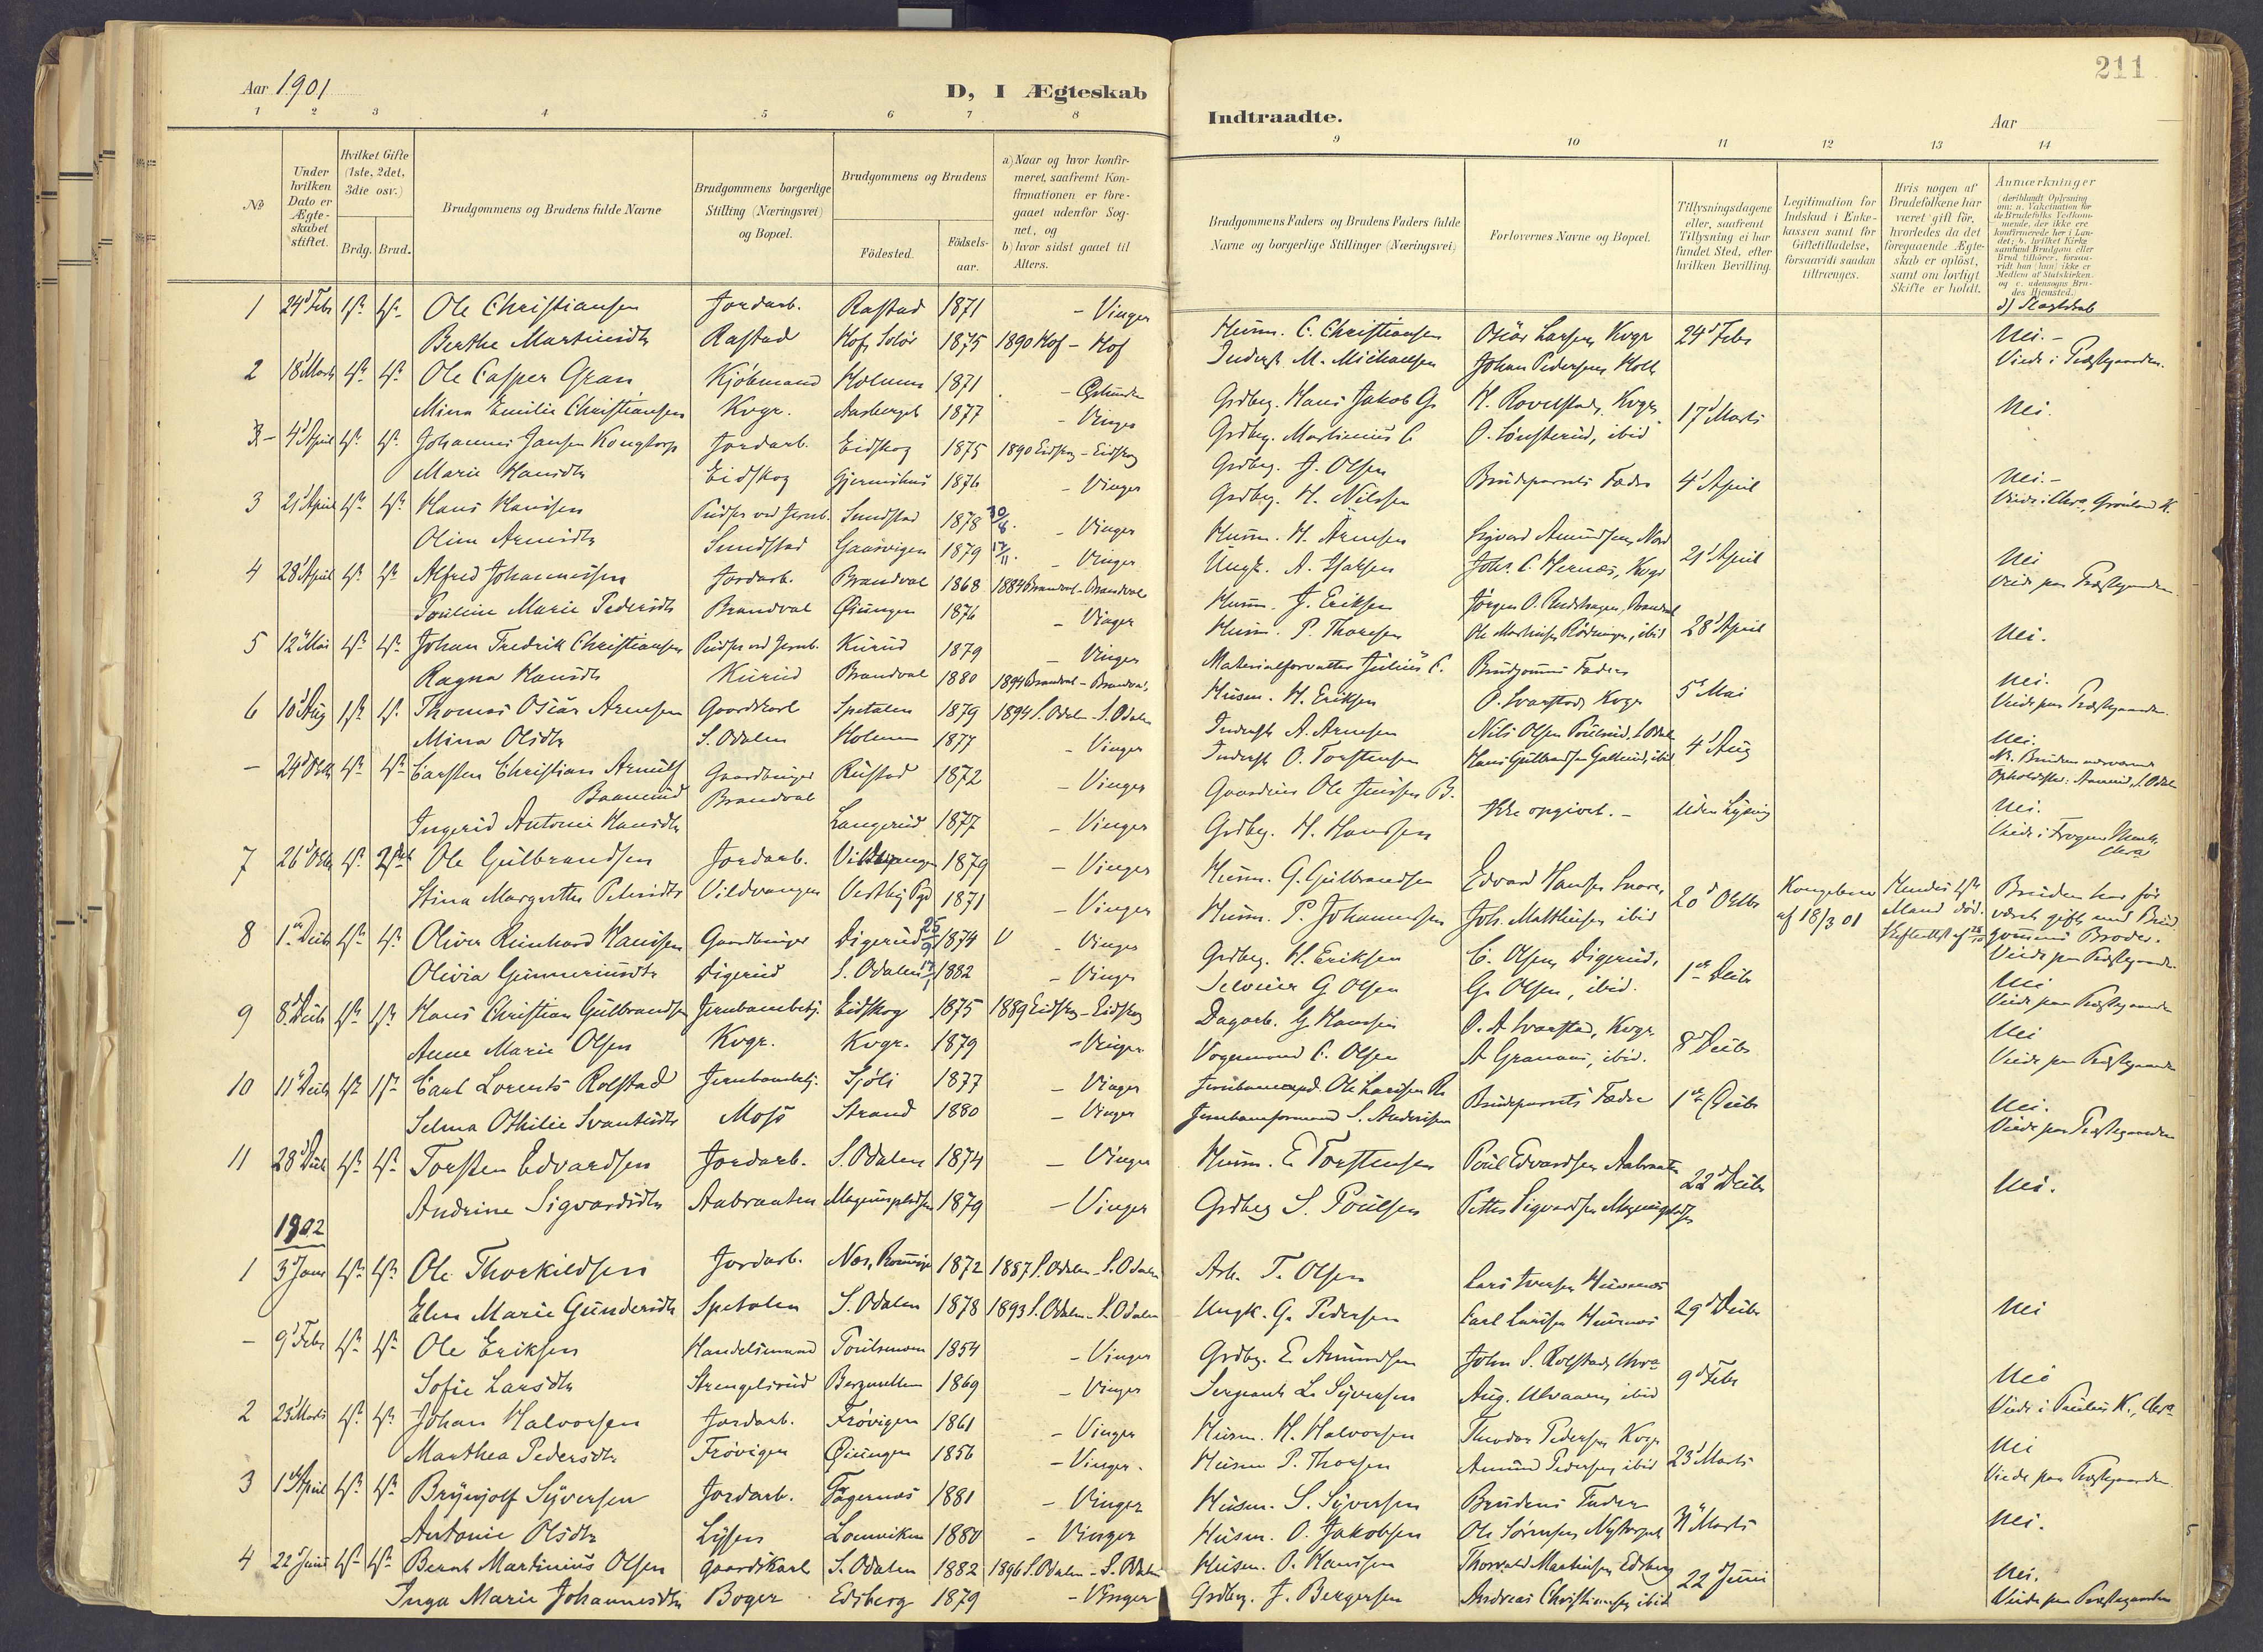 211
Aar 1901
D, I Ægteskab
Indtraadte.
Aar
1 2 3 4 5 6 7 8 9 10 11 12 13 14
№
Under hvilken Dato er Ægteskabet stiftet.
Hvilket Gifte (1ste, 2det, 3die osv.)
Brdg. Brud.
Brudgommens og Brudens fulde Navne
Brudgommens borgerlige Stilling (Næringsvei) og Bopæl.
Brudgommens og Brudens
Födested.
Födsels-aar.
a) Naar og hvor konfirmeret, saafremt Konfirmationen er foregaaet udenfor Sognet, og
b) hvor sidst gaaet til Alters.
Brudgommens Faders og Brudens Faders fulde Navne og borgerlige Stillinger (Næringsvei)
Forlovernes Navne og Bopæl.
Tillysningsdagene eller, saafremt Tillysning ei har fundet Sted, efter hvilken Bevilling.
Legitimation for Indskud i Enkekassen samt for Giftetilladelse, forsaavidt saadan tiltrænges.
Hvis nogen af Brudefolkene har været gift för, hvorledes da det foregaaende Ægteskab er oplöst, samt om lovligt Skifte er holdt.
Anmærkninger
d) Slægtskab
1 24d Febr 1ste 1ste Ole Christiansen Jordarb. Rastad 1871 - Vinger Husm. C. Christiansen Oscar Larsen, Kvgr 24d Febr Nei.-
Berthe Martinidtr Rastad Hof, Solör 1875 1890 Hof - Hof Inderst M. Michaelsen Johan Pedersen Holt Viede i Præstegaarden.
2 18d Marts 1ste 1ste Ole Casper Gran Kjöbmand Holmen 1871 Grdbrg. Hans Jakob G. H. Rovelstad, Kvgr 17d Marts Nei.
Mina Emilie Christiansen Kvgr. Aasberget 1877 - Vinger Grdbrg. Martinius C. O. Lönsterud, ibid
3- 4d April 1ste 1ste Johannes Jansen Kongtorp Jordarb. Eidskog 1875 1890 Eidskog - Eidskog Grdbrg. J. Olsen Brudeparrets Fædre 4d April Nei.-
Marie Hansdtr Eidskog Gjermshus 1876 - Vinger Grdbrg. H. Nilsen Viede i Chra, Grönland K.
3 21d April 1ste 1ste Hans Hansen Pudser ved Jernb. Sundstad 1878 30/6. - Vinger Husm. H. Arnesen Sigvard Amundsen, Nord 21d April Nei
Oline Arnesdtr Sundstad Gaasvigen 1879 - Vinger Ungk. A. Isaksen Johs. C. Hernæs, Kvgr Viede paa Præstegaarden
4 28d April 1ste 1ste Alfred Johannessen Jordarb. Brandval 1868 1884 Brandval - Brandval Husm. J. Eriksen 28d April Nei.
Pouline Marie Pedersdtr Brandval Öiungen 1876 - Vinger Husm. P. Thoresen
5 12d Mai 1ste 1ste Johan Fredrik Christiansen Pudser ved Jernb. Kurud 1879 - Vinger Materialforvalter Julius C. Brudgommens Fader 5te Mai Nei.
Ragna Hansdtr Kurud Brandval 1880 1894 Brandval - Brandval Husm. H. Eriksen O. Svarstad, Kvgr Viede paa Præstegaarden.
6 10d Aug 1ste 1ste Thomas Oscar Arnesen Gaardskarl Spetalen 1879 1894 S. Odalen - S. Odalen Inderst A. Arnesen Nils Olsen Poulsrud, S. Odal 4d Aug Nei.
Mina Olsdtr S. Odalen Holmen 1877 - Vinger Inderst O. Torstensen
- 24d Oktb 1ste 1ste Carsten Christian Arnulf Baanerud Gaardbruger Brandval Rustad 1872 - Vinger Gaardeier Ole Jenssen B. Ikke opgivet.- Uden Lysning Nei.
Ingerid Antonie Hansdtr Langerud 1877 - Vinger Grdbrg. H. Hanssen Viede i Frogner
7 26d Oktb 1ste 2det Ole Gulbrandsen Jordarb. Vildvangen 1879 - Vinger Husm. G. Gulbrandsen Edvard Hansen Snare, 20d Oktb Kongebrev af 18/3 01 Hendes 1ste Mand död. Bruden har för været gift med Brudgommens Broder.
Stina Margrethe Petersdtr Vildvangen Vestby Pgd 1871 - Vinger Husm. P. Johannessen Joh. Matthisen ibid Viede paa Præstegaarden
8 1ste Decbr 1ste 1ste Oliver Reinhard Hansen Gaardbruger Digerud 1874 - Vinger Grdbrg. H. Eriksen C. Olsen, Digerud, 1ste Decbr Nei
Olivia Gunneriusdtr Digerud S. Odalen 1882 - Vinger Selveier G. Olsen G. Olsen, ibid. Viede paa Præstegaarden
9 8d Decbr 1ste 1ste Hans Christian Gulbrandsen Jernbanebetj. Eidskog 1875 1889 Eidskog - Eidskog Dagarb. G. Hanssen O. A. Svarstad, Kvgr 8d Decbr Nei
Anne Marie Olsen Kvgr. Kvgr. 1879 - Vinger Vognmand C. Olsen A. Granaas, ibid. Viede paa Præstegaarden
10 11d Decbr 1ste 1ste Carl Lorents Rolstad Jernbanebetj. Sjöli 1877 - Vinger Brudeparrets Fædre 1ste Decbr Nei.
Selma Othilie Svantesdtr Moss Strand 1880 - Vinger Jernbaneformand S. Andersson Viede paa Præstegaarden
11 28d Decb 1ste 1ste Torsten Edvardsen Jordarb. S. Odalen 1874 - Vinger Husm. E. Torstensen Poul Edvardsen Aabraaten 22d Decbr Nei.
Andrine Sigvardsdtr Aabraaten Magnuspladsen 1879 - Vinger Grdbrg S. Poulsen Petter Sigvardsen Magnuspladsen
1902
1 3d Janr 1ste 1ste Ole Thorkildsen Jordarb. Næs, Romerige 1872 1887 S. Odalen - S. Odalen Arb. T. Olsen Lars Iversen Huvenæs 29d Decbr Nei
Elen Marie Gundersdtr Spetalen S. Odalen 1878 1893 S. Odalen - S. Odalen Ungk. G. Pedersen Carl Larsen Huvenæs
- 9d Febr 1ste 1ste Ole Eriksen Handelsmand Poulsmoen 1854 - Vinger Grdbrg. E. Amundsen John S. Rolstad, Chra 9d Febr Nei
Sofie Larsdtr Strengelsrud Bergmellem 1869 - Vinger Sergeant L. Syversen Aug. Ulvaaen, ibid Viede i Paulus K., Chra
2 23d Marts 1ste 1ste Johan Halvorsen Jordarb. Frövigen 1861 - Vinger Husm. H. Halvorsen Theodor Pedersen, Kvgr 23d Marts Nei
Marthea Pedersdtr Frövigen Öiungen 1856 - Vinger. Husm P. Thoresen Amund Pedersen, ibid Viede paa Præstegaarden.
3 1ste April 1ste 1ste Brynjolf Syversen Jordarb. Fagernæs 1881 - Vinger Husm. S. Syversen Brudens Fader Marts Nei.
Antonie Olsdtr Lyssen Lomviken 1880 - Vinger Husm. O. Jakobsen Ole Sörensen
4 22d Juni 1ste 1ste Bernt Martinius Olsen Gaardskarl S. Odalen 1882 1896 S. Odalen - S. Odalen Husm. O. Hanssen Thorvald Martinsen, Edsberg 22d Juni Nei.
Inga Marie Johannesdtr Boger Edsberg 1879 - Vinger Grdbrg. J. Bergersen Andreas Christiansen ibid Viede paa Præstegaarden